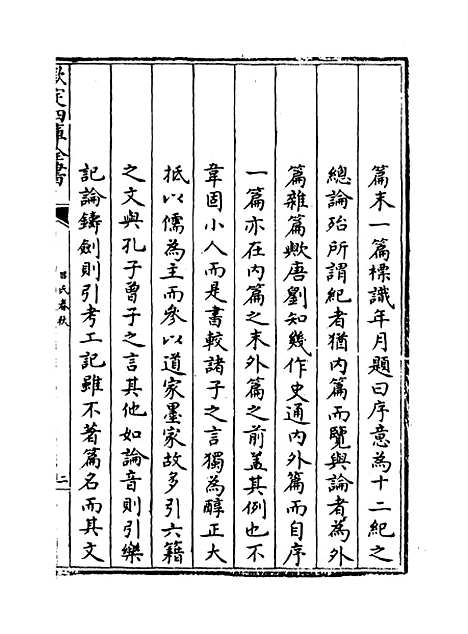 篇末一篇標識年月題曰序意為十二紀之
總論殆所謂紀者猶內篇而覽與論者為外
篇雜篇歟唐劉知幾作史通內外篇而自序
一篇亦在內篇之末外篇之前蓋其例也不
韋固小人而是書較諸子之言獨為醇正大
抵以儒為主而參以道家墨家故多引六籍
之文與孔子曾子之言其他如論音則引樂
記論鑄劍則引考工記雖不著篇名而其文
欽定四庫全書
呂氏春秋
二